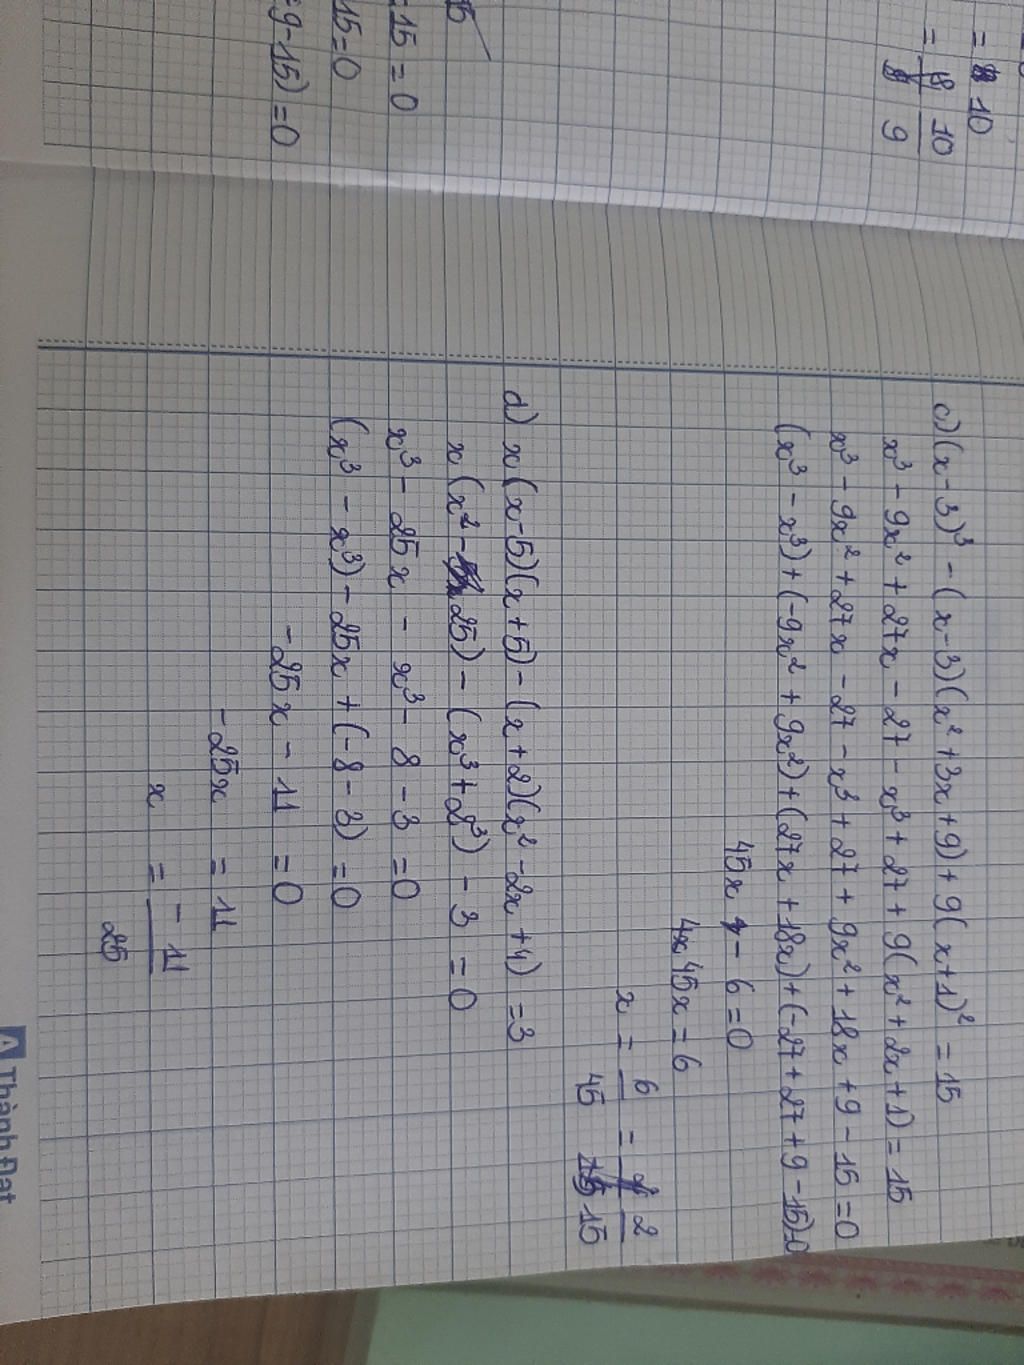 = 10
= 10
9
15
- 15 = 0
15 = 0
+ 9 - 15) = 0
c) (x - 3)³ - (x - 3)(x² + 3x + 9) + 9(x + 1)² = 15
x³ - 9x² + 27x - 27 - x³ + 27 + 9(x² + 2x + 1) = 15
x³ - 9x² + 27x - 27 - x³ + 27 + 9x² + 18x + 9 - 15 = 0
(x³ - x³) + (-9x² + 9x²) + (27x + 18x) + (-27 + 27 + 9 - 15) = 0
45x - 6 = 0
45x = 6
x = 6/45 = 2/15
d) x(x - 5)(x + 5) - (x + 2)(x² - 2x + 4) = 3
x(x² - 25) - (x³ + 2³) - 3 = 0
x³ - 25x - x³ - 8 - 3 = 0
(x³ - x³) - 25x + (-8 - 3) = 0
- 25x - 11 = 0
- 25x = 11
x = -11/25
Thành Đạt